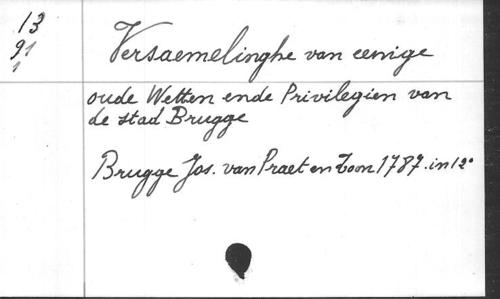 13
91
1
Versaemelinghe van eenige
oude Wetten ende Privilegien van
de stad Brugge
Brugge Jos. van Praet en Zoon 1787. in 12°